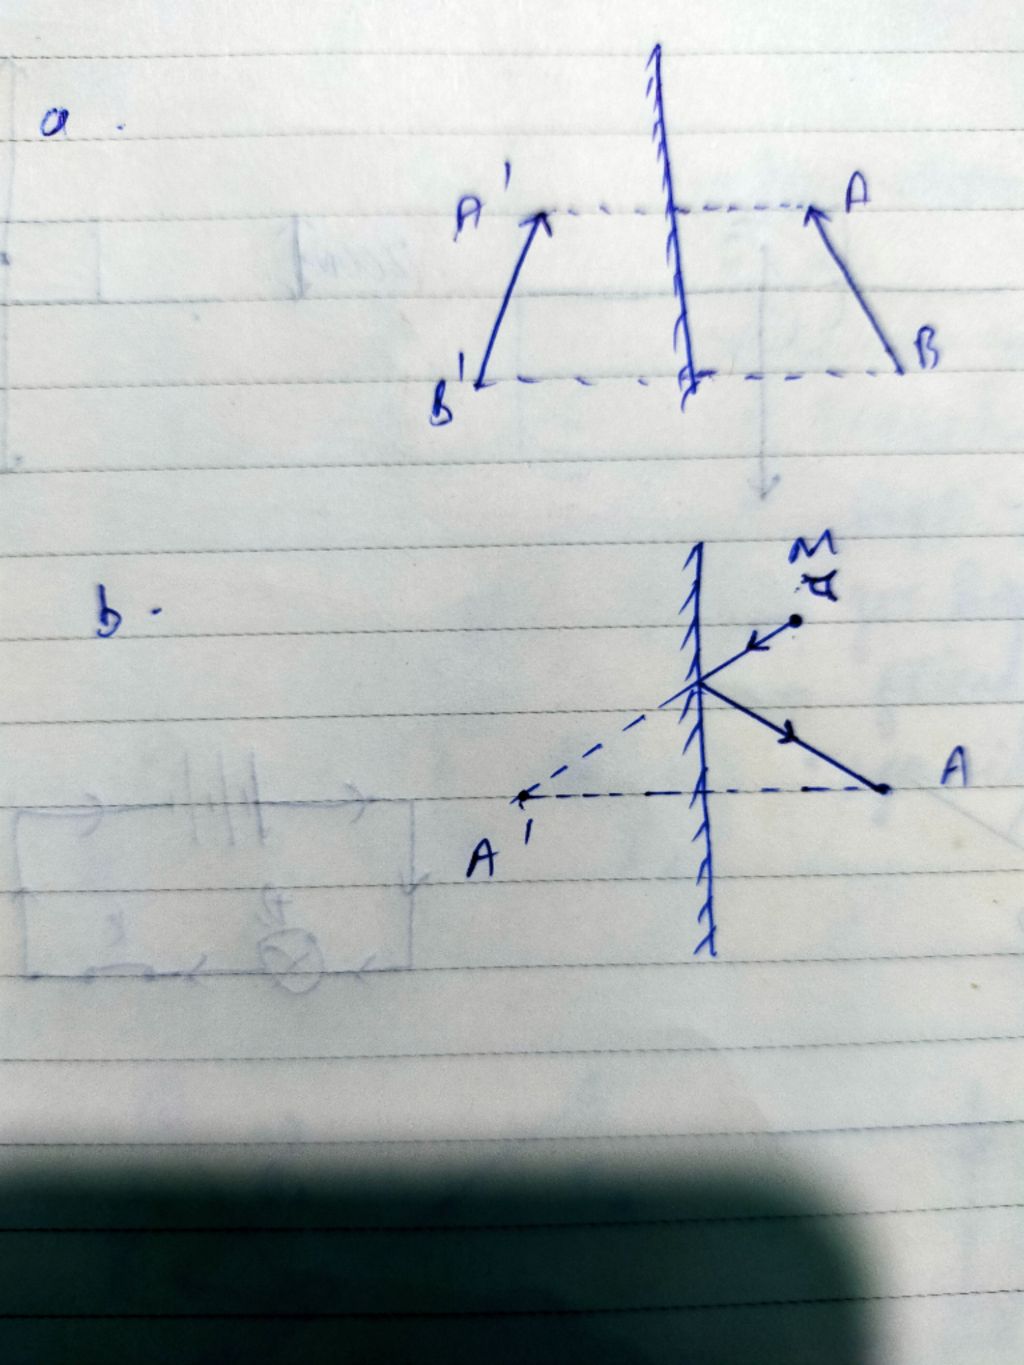 a.
A' A
B' B
b.
M
A
A'